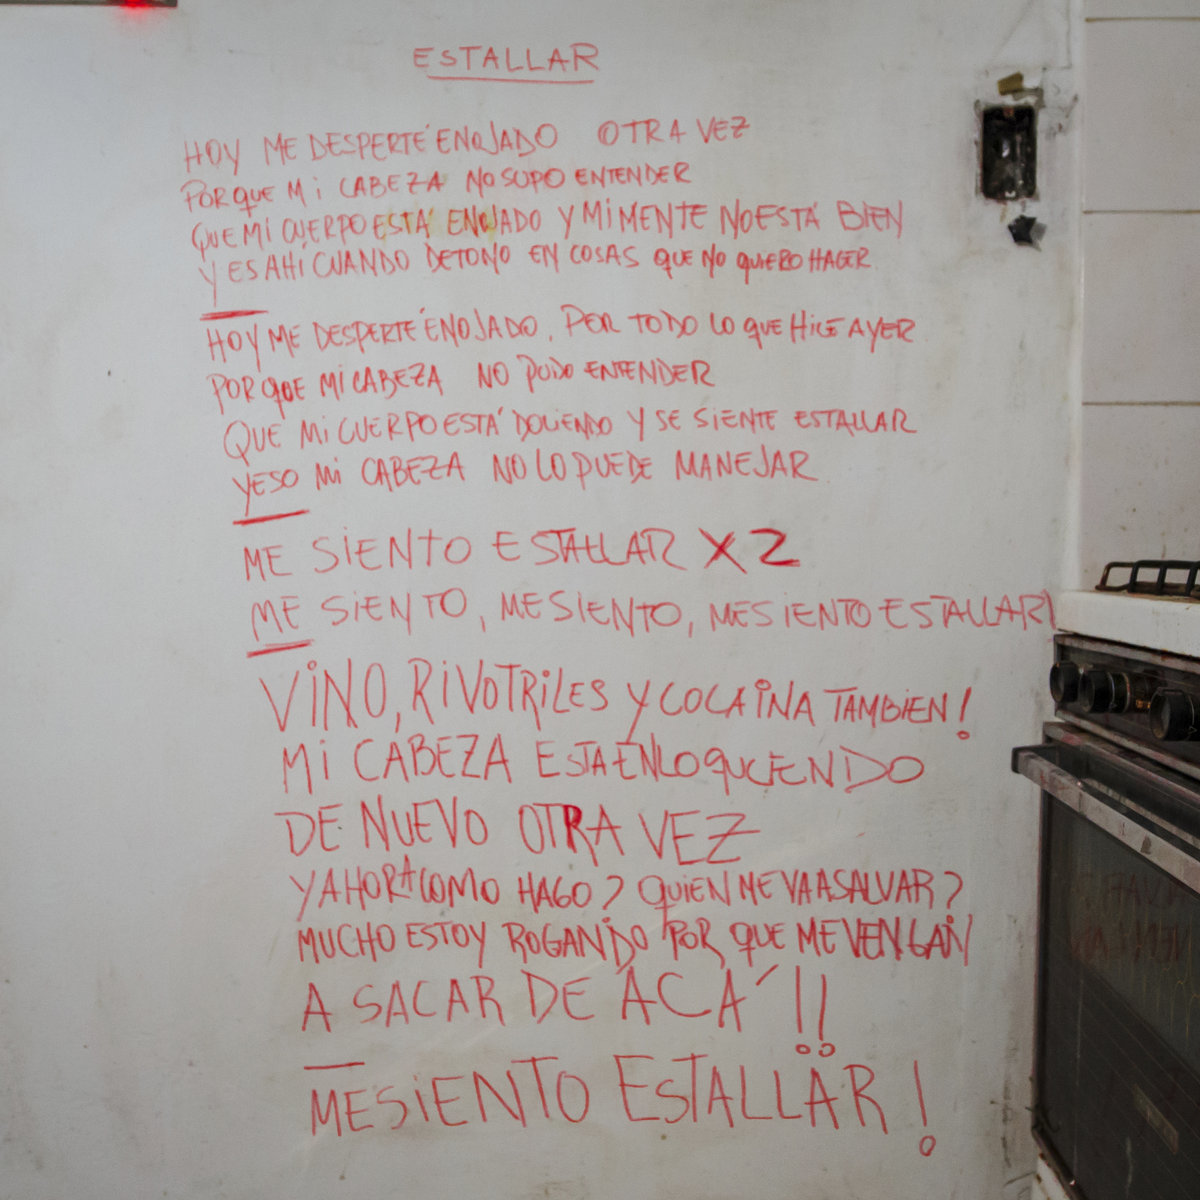 ESTALLAR
HOY ME DESPERTÉ ENOJADO OTRA VEZ
PORQUE MI CABEZA NO SUPO ENTENDER
QUE MI CUERPO ESTÁ ENOJADO Y MI MENTE NO ESTÁ BIEN
Y ES AHÍ CUANDO DETONO EN COSAS QUE NO QUIERO HACER
HOY ME DESPERTÉ ENOJADO, POR TODO LO QUE HICE AYER
PORQUE MI CABEZA NO PUDO ENTENDER
QUE MI CUERPO ESTÁ DOLIENDO Y SE SIENTE ESTALLAR
Y ESO MI CABEZA NO LO PUEDE MANEJAR
ME SIENTO ESTALLAR X2
ME SIENTO, ME SIENTO, ME SIENTO ESTALLAR
VINO, RIVOTRILES Y COCAINA TAMBIEN!
MI CABEZA ESTA ENLOQUCIENDO
DE NUEVO OTRA VEZ
Y AHORA COMO HAGO? QUIEN ME VA A SALVAR?
MUCHO ESTOY ROGANDO POR QUE ME VENGAN
A SACAR DE ACÁ!!
ME SIENTO ESTALLAR!